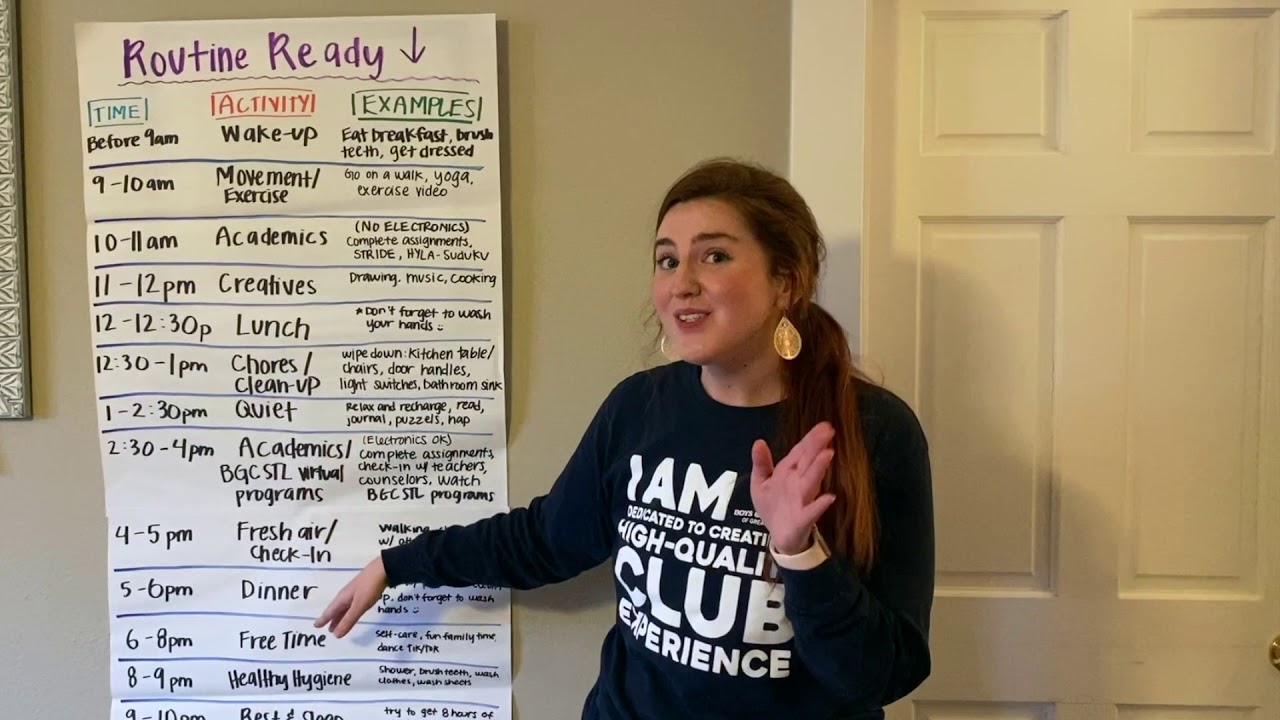 Routine Ready ↓
TIME ACTIVITY EXAMPLES
Before 9am Wake-up Eat breakfast, brush
teeth, get dressed
9-10am Movement/ Go on a walk, yoga,
Exercise exercise video
(NO ELECTRONICS)
10-11am Academics Complete assignments,
STRIDE, HYLA-SUDUKU
11-12pm Creatives Drawing. music, cooking
12-12:30p Lunch *Don't forget to wash
your hands
12:30-1pm Chores/ wipe down: Kitchen table/
clean-up chairs, door handles,
light switches, bathroom sink
1-2:30pm Quiet Relax and recharge, read,
journal, puzzels, nap
2:30-4pm Academics/ (Electronics OK)
BGCSTL virtual complete assignments,
programs check-in w/ teachers,
counselors, watch
BGCSTL programs
4-5pm Fresh air/ Walking
Check-In w/
5-6pm Dinner don't forget to wash
hands
6-8pm Free Time self-care, fun family time,
dance TikTok
8-9pm Healthy Hygiene Shower, brush teeth, wash
clothes, wash sheets
9-10pm Rest & Sleep try to get 8 hours of
I AM
BOYS
OF
DEDICATED TO
HIGH-
CLUB
EXPERIENCE